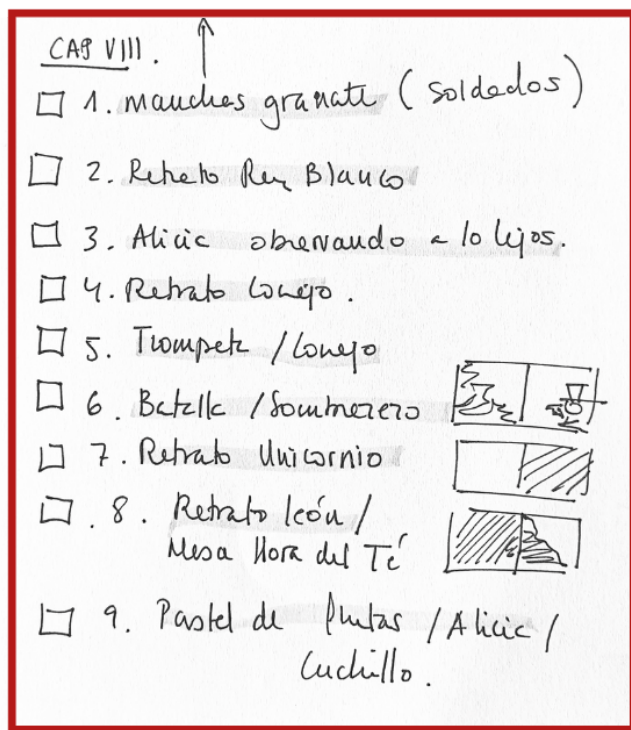 CAP VIII.
1. manchas granate (soldados)
2. Retrato Rey Blanco
3. Alicia observando a lo lejos.
4. Retrato Conejo.
5. Trompeta / Conejo
6. Batalla / Sombrerero
7. Retrato Unicornio
8. Retrato león /
Mesa Hora del Té
9. Pastel de frutas / Alicia /
Cuchillo.